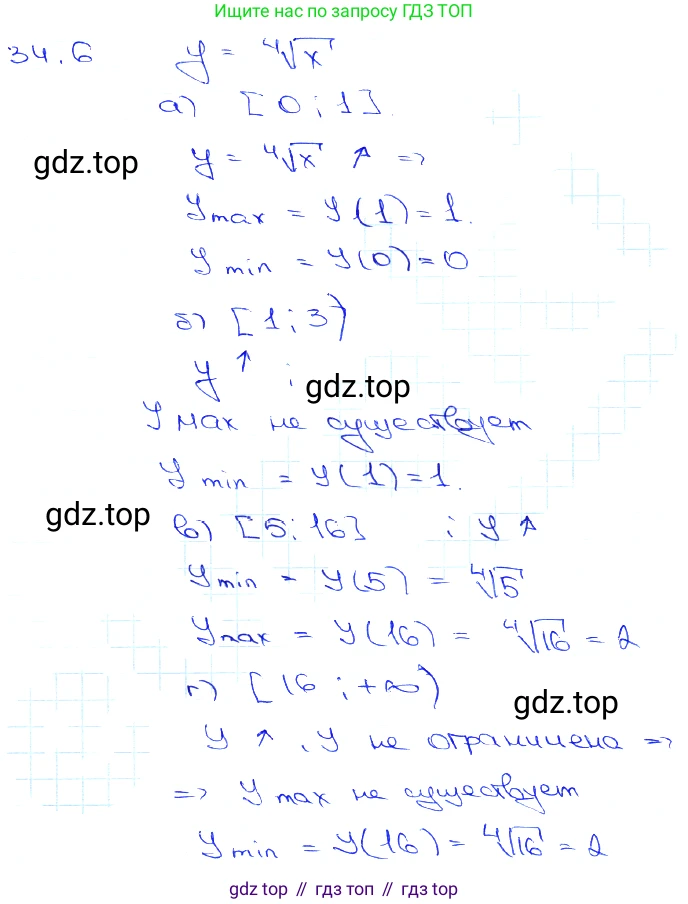 Ищите нас по запросу ГДЗ ТОП
34.6 y = ⁴√x
а) [0; 1].
y = ⁴√x ↑ =>
gdz.top
y max = y(1) = 1.
y min = y(0) = 0
б) [1; 3)
y ↑ ;
gdz.top
y мах не существует
y min = y(1) = 1.
gdz.top
в) [5; 16] ; y ↑
y min = y(5) = ⁴√5
y max = y(16) = ⁴√16 = 2
г) [16; +∞)
gdz.top
y ↑, y не ограничена =>
=> y max не существует
y min = y(16) = ⁴√16 = 2
gdz top // гдз топ // гдз.top